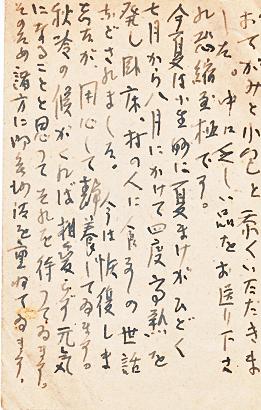 おてがみと小包と忝くいただきま
した。中に乏しい品をお送り下さ
れ恐縮至極です。
今夏は小生妙に夏まけがひどく
七月から八月にかけて四度高熱を
発し臥床、村の人に食事の世話
などされました。今は恢復しま
したが、用心して静養してゐます。
秋冷の候がくれば相変らず元気
になることと思つてそれを待つてゐます。
そのため諸方に御無沙汰を重ねてゐます。